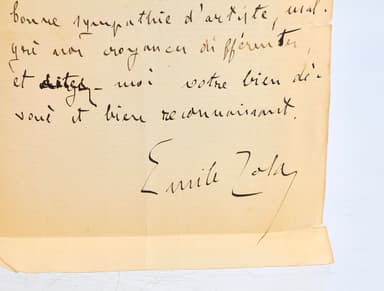 bonne sympathie d'artiste, mal-
gré nos croyances différentes,
et moi votre bien dé-
voué et bien reconnaissant.
Emile Zola